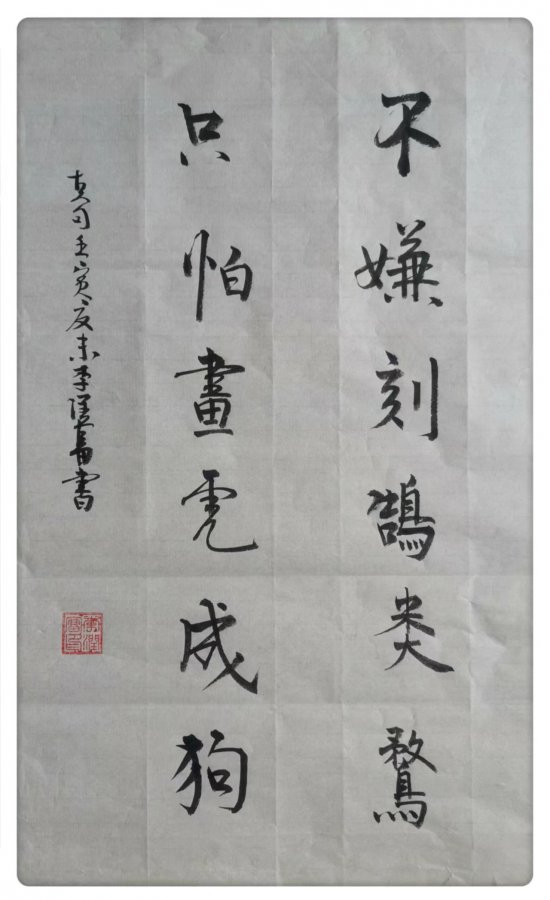 不嫌刻鵠类鶩
只怕畫虎成狗
壬寅夏末李
書